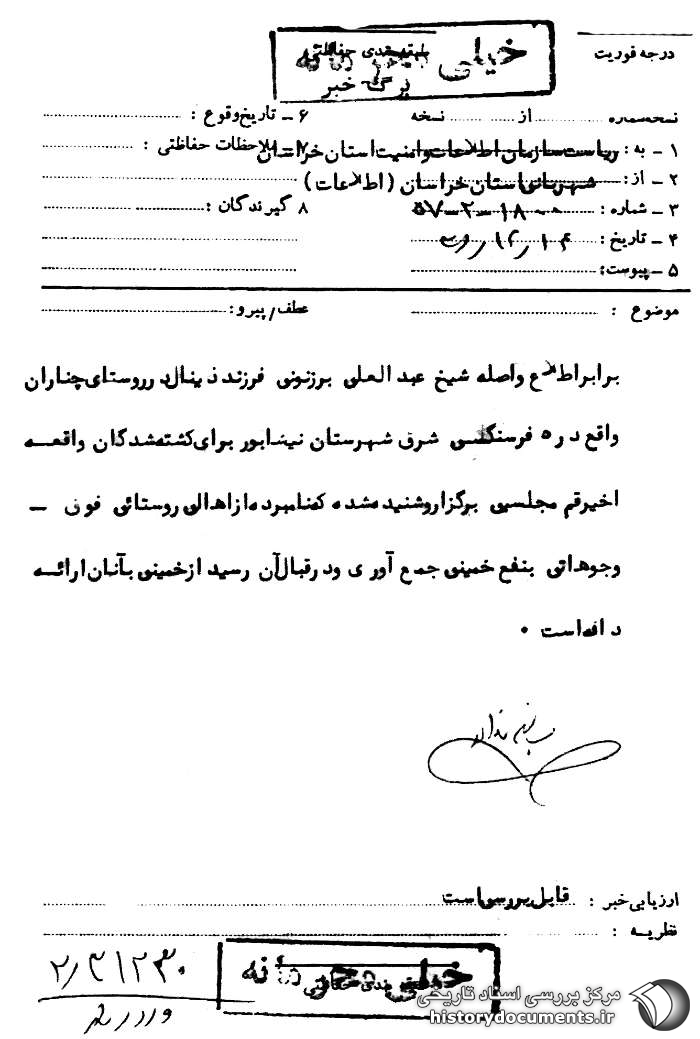 خیلی محرمانه
طبقه‌بندی حفاظتی
برگ خبر
درجه فوریت
نسخه‌شماره ........ از ........ نسخه
۶ - تاریخ وقوع :
۱ - به : ریاست سازمان اطلاعات و امنیت استان خراسان
۷ - ملاحظات حفاظتی :
۲ - از : شهربانی استان خراسان (اطلاعات)
۳ - شماره : ۱۸۰۰-۲-۵۷
۸ گیرندگان :
۴ - تاریخ :
۵ - پیوست :
موضوع :
عطف/پیرو :
برابر اطلاع واصله شیخ عبدالعلی برزنونی فرزند ذینال در روستای چناران
واقع در ۵ فرسنگی شرق شهرستان نیشابور برای کشته‌شدگان واقعه
اخیر قم مجلسی برگزار و شنیده شده که نامبرده از اهالی روستائی فوق -
وجوهاتی بنفع خمینی جمع آوری و در قبال آن رسید از خمینی بآنان ارائه
داده است ۰
ارزیابی خبر : قابل بررسی است
نظریه :
خیلی محرمانه
طبقه‌بندی حفاظتی
مرکز بررسی اسناد تاریخی
historydocuments.ir